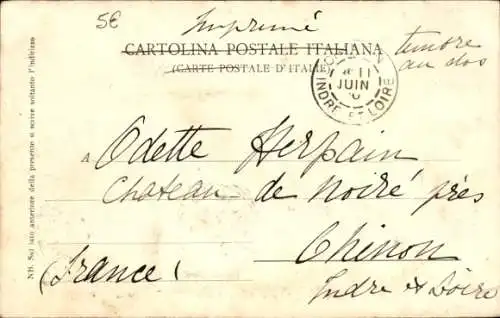 5E
Imprimé
CARTOLINA POSTALE ITALIANA
(CARTE POSTALE D'ITALIE)
timbre
au dos
11
JUIN
INDRE-ET-LOIRE
A Odette Herpain
Chateau de Noiré près
Chinon
(France) Indre et Loire
NB. Sul lato anteriore della presente si scrive soltanto l'indirizzo